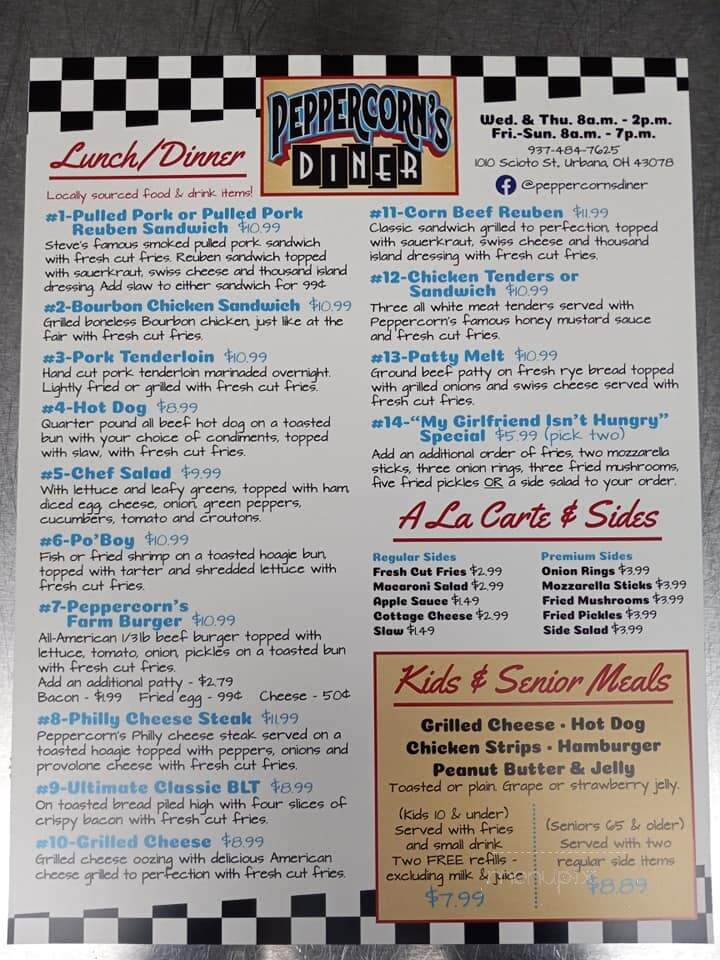 PEPPERCORN'S
DINER
Wed. & Thu. 8a.m. - 2p.m.
Fri.-Sun. 8a.m. - 7p.m.
937-484-7625
1010 Scioto St, Urbana, OH 43078
@peppercornsdiner
Lunch/Dinner
Locally sourced food & drink items!
#1-Pulled Pork or Pulled Pork
Reuben Sandwich $10.99
Steve's famous smoked pulled pork sandwich
with fresh cut fries. Reuben sandwich topped
with sauerkraut, swiss cheese and thousand island
dressing. Add slaw to either sandwich for 99¢
#2-Bourbon Chicken Sandwich $10.99
Grilled boneless Bourbon chicken, just like at the
fair with fresh cut fries.
#3-Pork Tenderloin $10.99
Hand cut pork tenderloin marinaded overnight.
Lightly fried or grilled with fresh cut fries.
#4-Hot Dog $8.99
Quarter pound all beef hot dog on a toasted
bun with your choice of condiments, topped
with slaw, with fresh cut fries.
#5-Chef Salad $9.99
With lettuce and leafy greens, topped with ham,
diced egg, cheese, onion, green peppers,
cucumbers, tomato and croutons.
#6-Po'Boy $10.99
Fish or fried shrimp on a toasted hoagie bun,
topped with tarter and shredded lettuce with
fresh cut fries.
#7-Peppercorn's
Farm Burger $10.99
All-American 1/3lb beef burger topped with
lettuce, tomato, onion, pickles on a toasted bun
with fresh cut fries.
Add an additional patty - $2.79
Bacon - $1.99 Fried egg - 99¢ Cheese - 50¢
#8-Philly Cheese Steak $11.99
Peppercorn's Philly cheese steak served on a
toasted hoagie topped with peppers, onions and
provolone cheese with fresh cut fries.
#9-Ultimate Classic BLT $8.99
On toasted bread piled high with four slices of
crispy bacon with fresh cut fries.
#10-Grilled Cheese $8.99
Grilled cheese oozing with delicious American
cheese grilled to perfection with fresh cut fries.
#11-Corn Beef Reuben $11.99
Classic sandwich grilled to perfection, topped
with sauerkraut, swiss cheese and thousand
island dressing with fresh cut fries.
#12-Chicken Tenders or
Sandwich $10.99
Three all white meat tenders served with
Peppercorn's famous honey mustard sauce
and fresh cut fries.
#13-Patty Melt $10.99
Ground beef patty on fresh rye bread topped
with grilled onions and swiss cheese served with
fresh cut fries.
#14-"My Girlfriend Isn't Hungry"
Special $5.99 (pick two)
Add an additional order of fries, two mozzarella
sticks, three onion rings, three fried mushrooms,
five fried pickles OR a side salad to your order.
A La Carte & Sides
Regular Sides
Fresh Cut Fries $2.99
Macaroni Salad $2.99
Apple Sauce $1.49
Cottage Cheese $2.99
Slaw $1.49
Premium Sides
Onion Rings $3.99
Mozzarella Sticks $3.99
Fried Mushrooms $3.99
Fried Pickles $3.99
Side Salad $3.99
Kids & Senior Meals
Grilled Cheese • Hot Dog
Chicken Strips • Hamburger
Peanut Butter & Jelly
Toasted or plain. Grape or strawberry jelly.
(Kids 10 & under)
Served with fries
and small drink
Two FREE refills -
excluding milk & juice
$7.99
(Seniors 65 & older)
Served with two
regular side items
$8.89
menupix